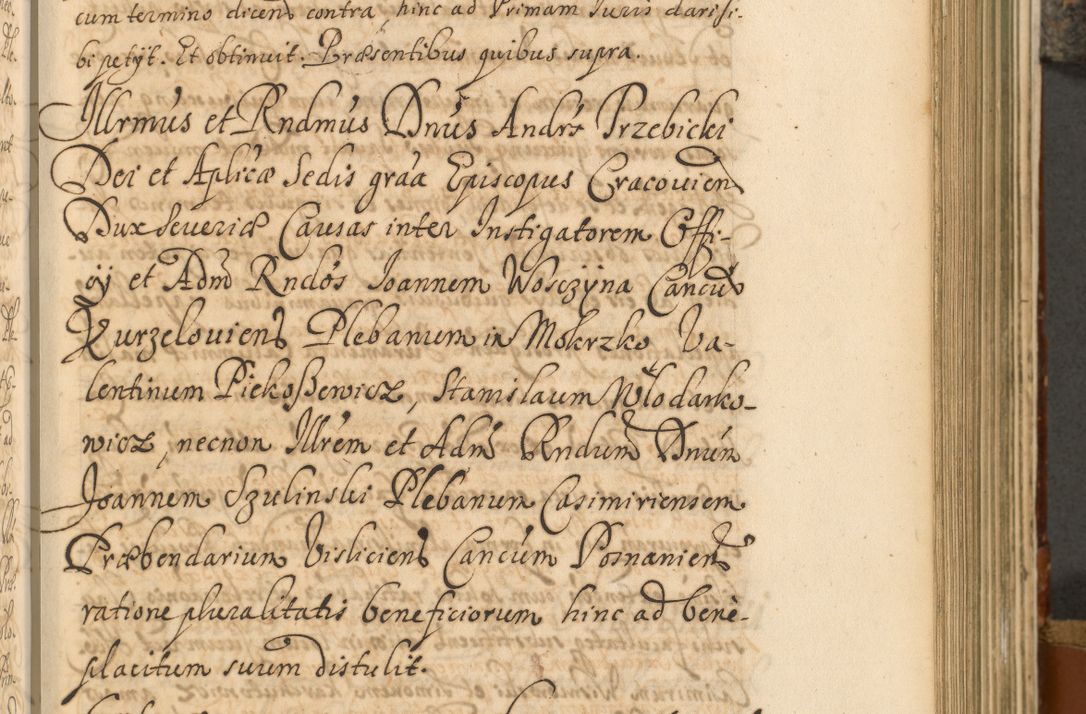 cum termino dicend contra, hinc ad Primam Iuris dari si-
bi petÿt. Et obtinuit. Præsentibus quibus supra.
Illrmus et Rndmus Dnus Andrs Trzebicki
Dei et Aplicæ Sedis graa Episcopus Cracouien
Dux Seueriæ Causas inter Instigatorem Offi-
cÿ et Adm Rndos Ioannem Wosczyna Cancum
Kurzelouiens Plebanum in Mokrzko Va-
lentinum Piekoszewicz, Stanislaum Włodarko-
wicz, necnon Illrem et Adm Rndum Dnum
Ioannem Szulinski Plebanum Casimiriensem
Præbendarium Visliciens Cancum Posnaniens
ratione pluralitatis beneficiorum hinc ad bene-
placitum suum distulit.